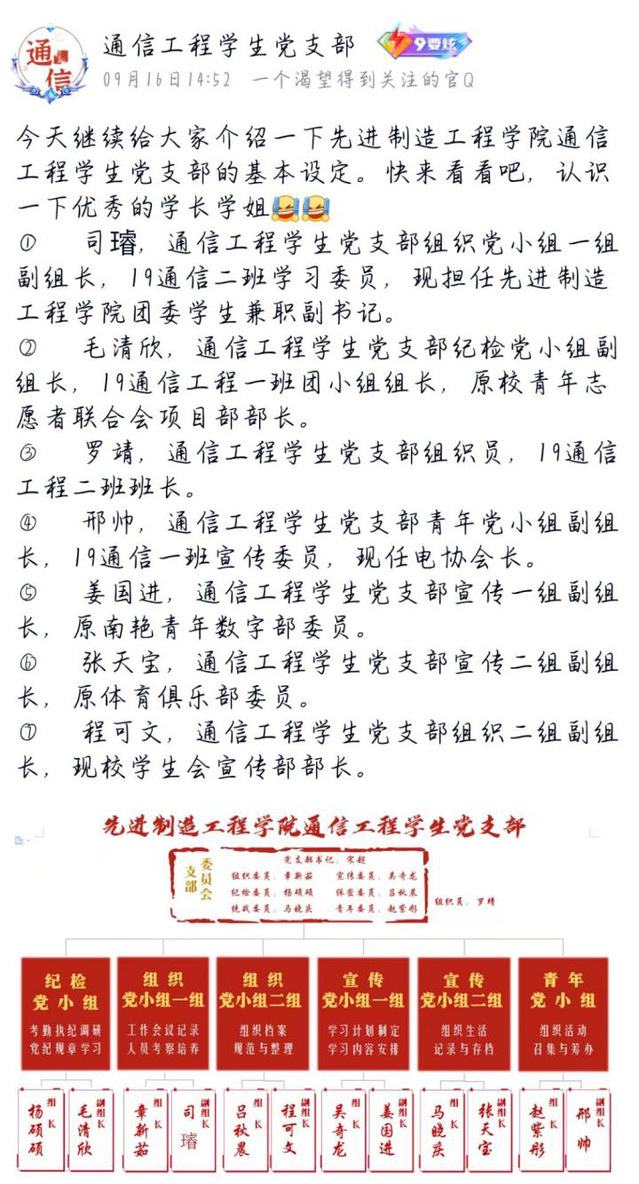 通信
通信工程学生党支部
9要炫
09月16日14:52 一个渴望得到关注的官Q
今天继续给大家介绍一下先进制造工程学院通信
工程学生党支部的基本设定。快来看看吧，认识
一下优秀的学长学姐
① 司璿，通信工程学生党支部组织党小组一组
副组长，19通信二班学习委员，现担任先进制造
工程学院团委学生兼职副书记。
② 毛清欣，通信工程学生党支部纪检党小组副
组长，19通信工程一班团小组组长，原校青年志
愿者联合会项目部部长。
③ 罗靖，通信工程学生党支部组织员，19通信
工程二班班长。
④ 邢帅，通信工程学生党支部青年党小组副组
长，19通信一班宣传委员，现任电协会长。
⑤ 姜国进，通信工程学生党支部宣传一组副组
长，原南艳青年数字部委员。
⑥ 张天宝，通信工程学生党支部宣传二组副组
长，原体育俱乐部委员。
⑦ 程可文，通信工程学生党支部组织二组副组
长，现校学生会宣传部部长。
先进制造工程学院通信工程学生党支部
支部委员会
党支部书记：宋超
组织委员：章新茹 宣传委员：吴奇龙
纪检委员：杨硕硕 保密委员：吕秋晨
统战委员：马晓庆 青年委员：赵紫彤
组织员：罗靖
纪检
党小组
考勤执纪调研
党纪规章学习
组织
党小组一组
工作会议记录
人员考察培养
组织
党小组二组
组织档案
规范与整理
宣传
党小组一组
学习计划制定
学习内容安排
宣传
党小组二组
组织生活
记录与存档
青年
党小组
组织活动
召集与筹办
组长
杨硕硕
副组长
毛清欣
组长
章新茹
副组长
司璿
组长
吕秋晨
副组长
程可文
组长
吴奇龙
副组长
姜国进
组长
马晓庆
副组长
张天宝
组长
赵紫彤
副组长
邢帅